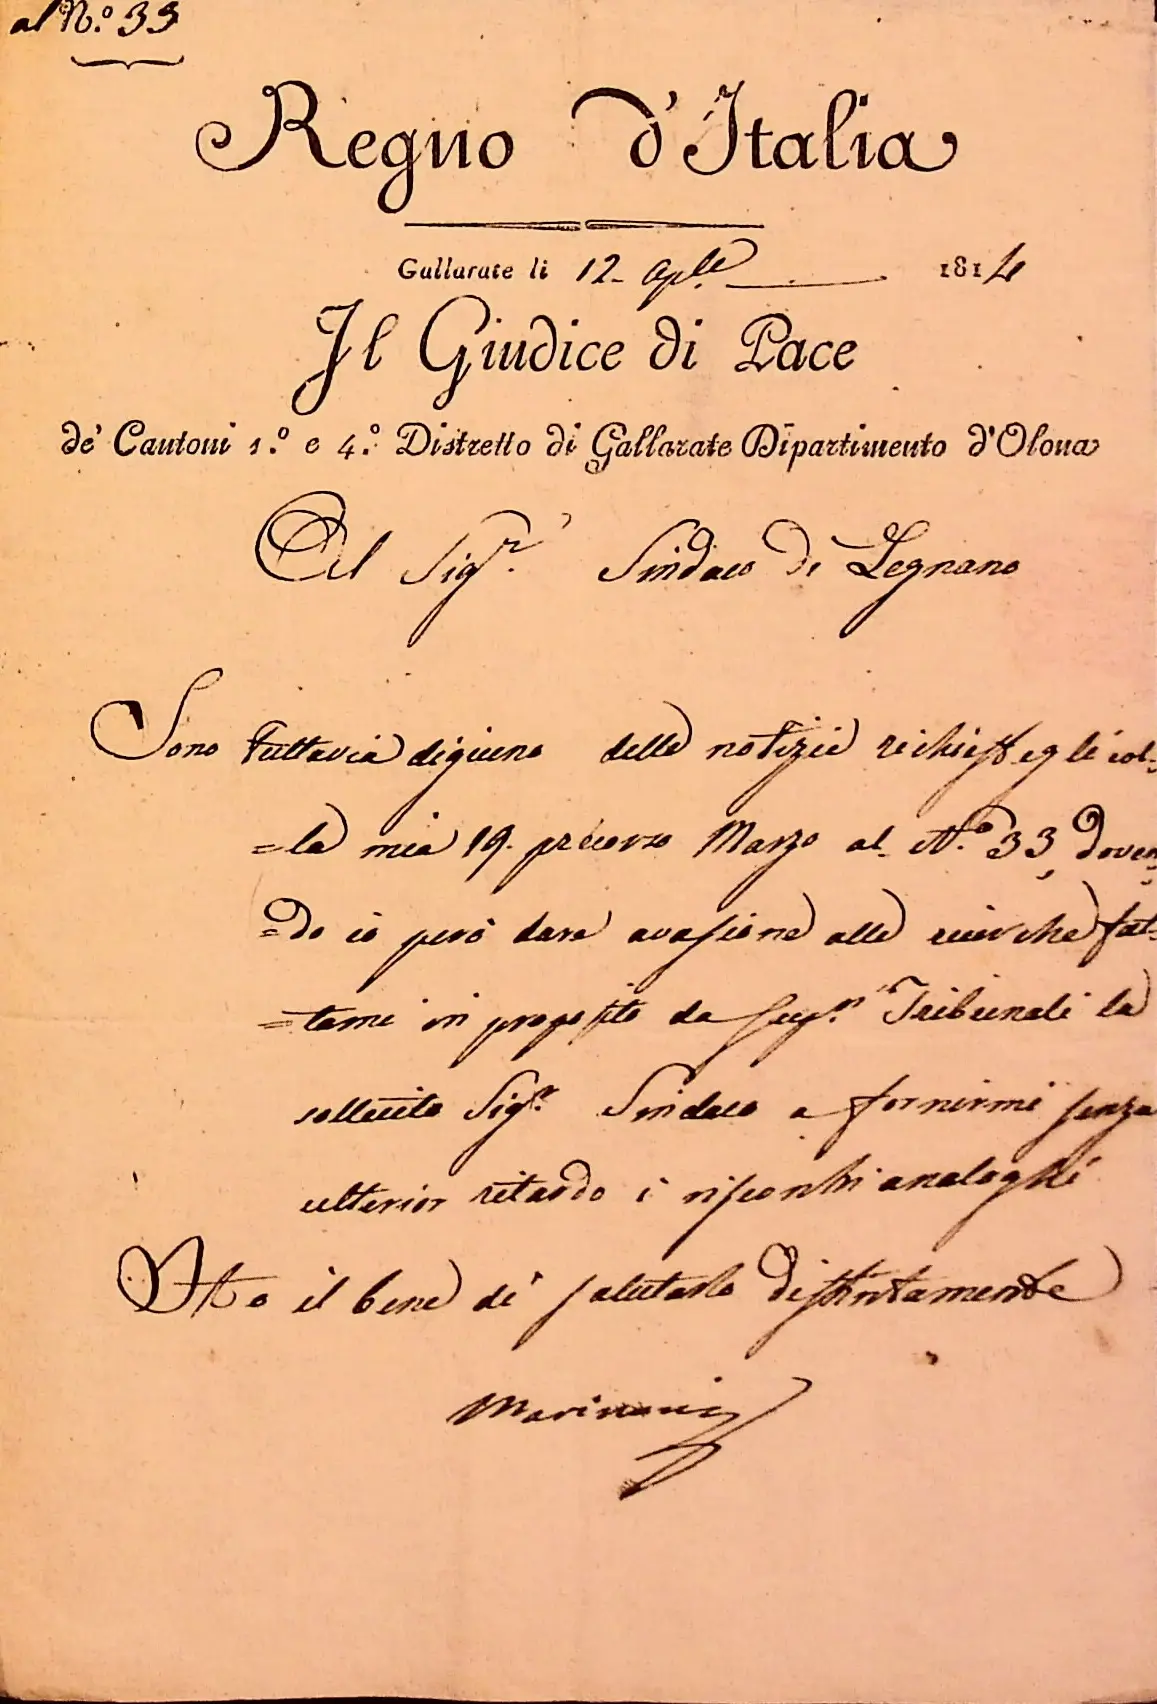 al N.o 33
Regno d'Italia
Gallarate li 12. aple. 1814
Il Giudice di Pace
de' Cantoni 1.o e 4.o Distretto di Gallarate Dipartimento d'Olona
Al Sigr. Sindaco di Legnano
Sono tuttavia digiuno delle notizie richieste gli col-
=la mia 19. precorso Marzo al N.o 33, doven-
=do io però dare evasione alle ricerche fat-
=temi in proposito da supri. Tribunali la
sollecito Sigr. Sindaco a fornirmi senza
ulterior ritardo i riscontri analoghi
Ho il bene di salutarlo distintamente
Marinoni